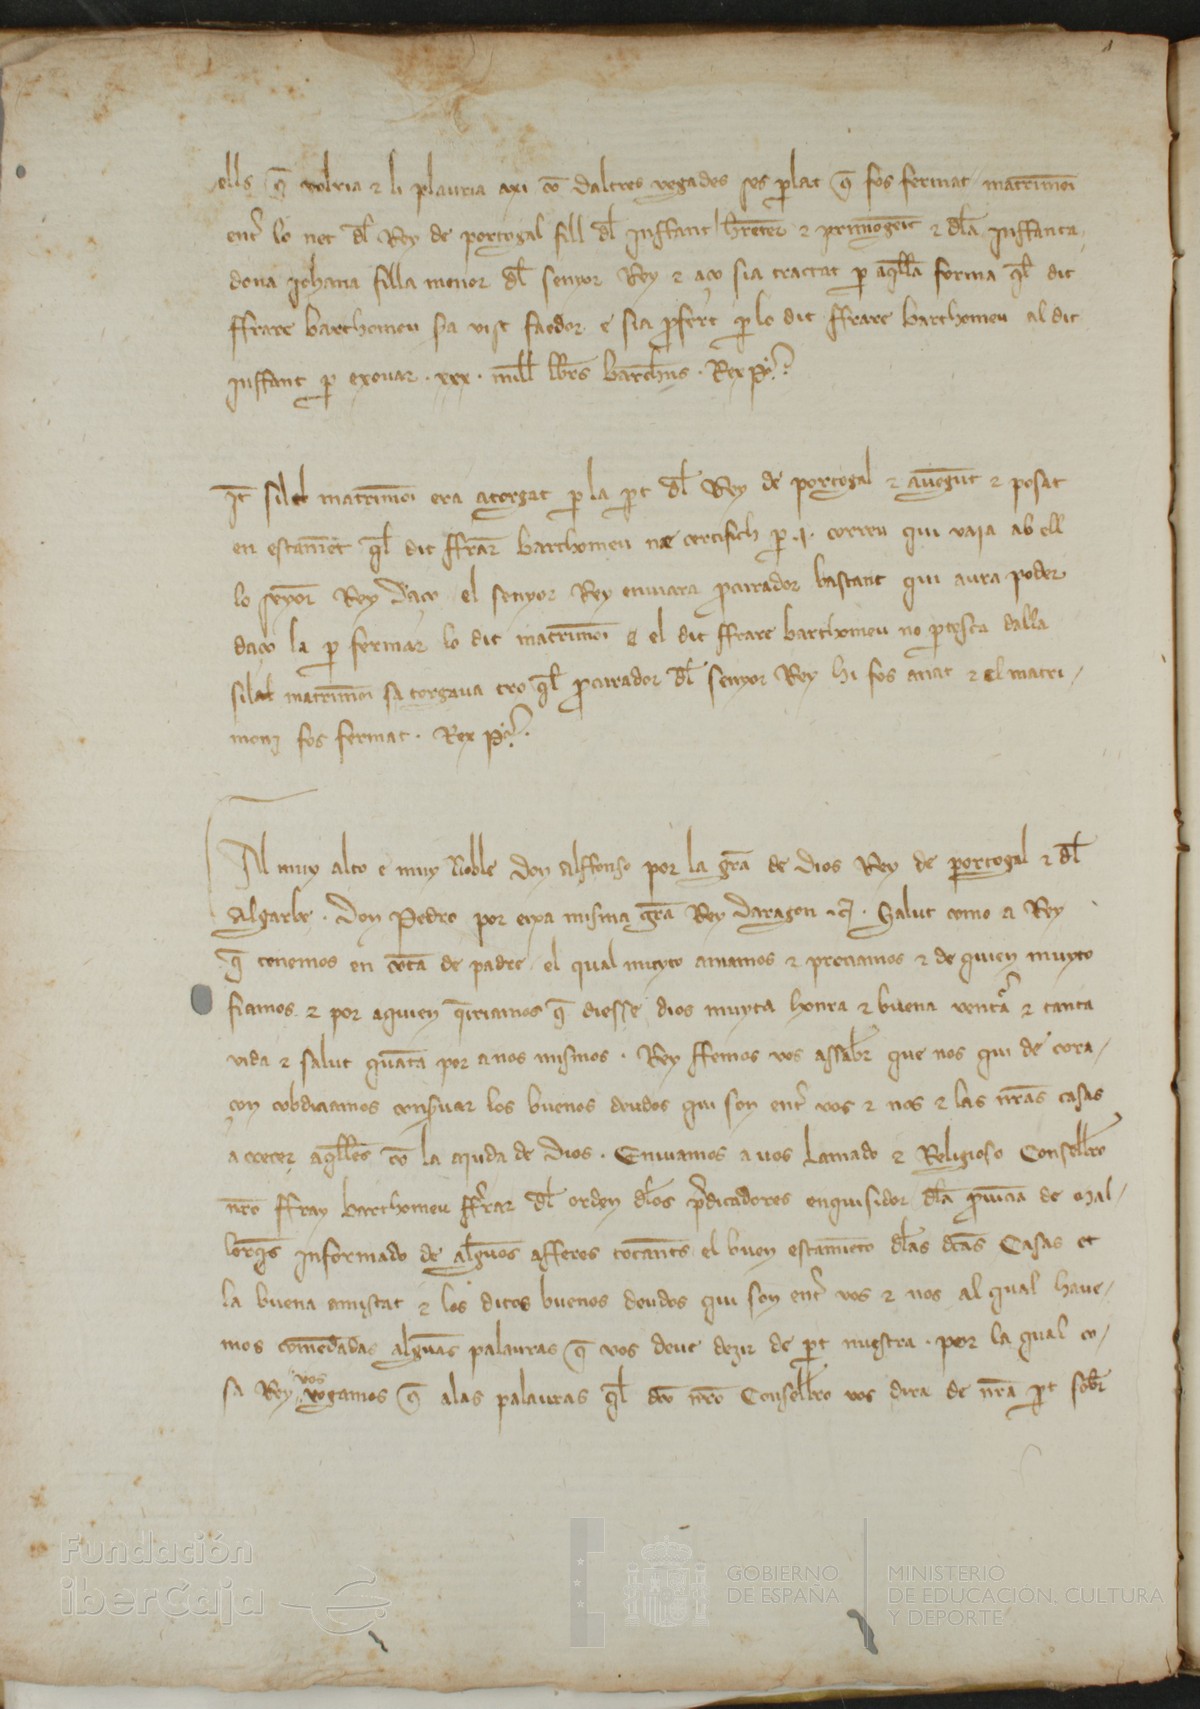 ells q̄ volria & li plauria axi cō daltres vegades ses plat q̄ fos fermat matrimōi
ent' lo net dl Rey de portogal fill dl Inffant hereter & primogēit & dla Inffanta
dona Johana filla menor dl senyor Rey & aço sia tractat p aqlla forma ql dit
ffrare barthomeu sa vist faedor e sia pfert p lo dit ffrare barthomeu al dit
Inffant p exouar · xxx · mill lbrs barchns · Rex P.
It sil matrimōi era atorgat p la pt dl Rey de portogal & avēgut & posat
en estamēt ql dit ffrar barthomeu ne certifich p .I. correu qui vaja ab ell
lo seyor Rey daço el senyor Rey enviara pcurador bastant qui aura poder
daço la p fermar lo dit matrimōi e el dit ffrare barthomeu no ptesca dalla
sil matrimōi sa torgava tro ql pcurador dl senyor Rey hi fos anat & el matri/
moni fos fermat · Rex P.
Al muy alto e muy Noble Don Alffonso por la gra de dios Rey de portogal & dl
Algarbe · Don Pedro por exa misma gra Rey Daragon &c · Salut como a Rey
q̄ tenemos en cōta de padre el qual muyto amamos & preciamos & de quien muyto
fiamos & por aquien q̄rriamos q̄ diesse dios muyta honra & buena ventra & tanta
vida & salut quāta por a nos mismos · Rey ffemos vos assaber que nos qui de cora/
çon cobdiciamos conseruar los buenos deudos qui son ent' vos & nos & las nras casas
a creçer aqlles cō la aiuda de dios · Enviamos a uos Lamado & Religioso Consellero
nro ffray barthomeu ffrrar dl orden dlos pdicadores enquisidor dla puincia de Mal/
lorqs Informado de algunos afferes tocants el buen estamēto dlas dcas Casas et
la buena amistat & los ditos buenos deudos qui son ent' vos & nos al qual haue/
mos comēdadas algūas palauras q̄ vos deue dezir de pt nuestra · por la qual co/
sa Rey vos rogamos q̄ alas palauras ql dco nro Consellero vos dira de nra pt sobr
Fundación
iberCaja
GOBIERNO
DE ESPAÑA
MINISTERIO
DE EDUCACIÓN, CULTURA
Y DEPORTE